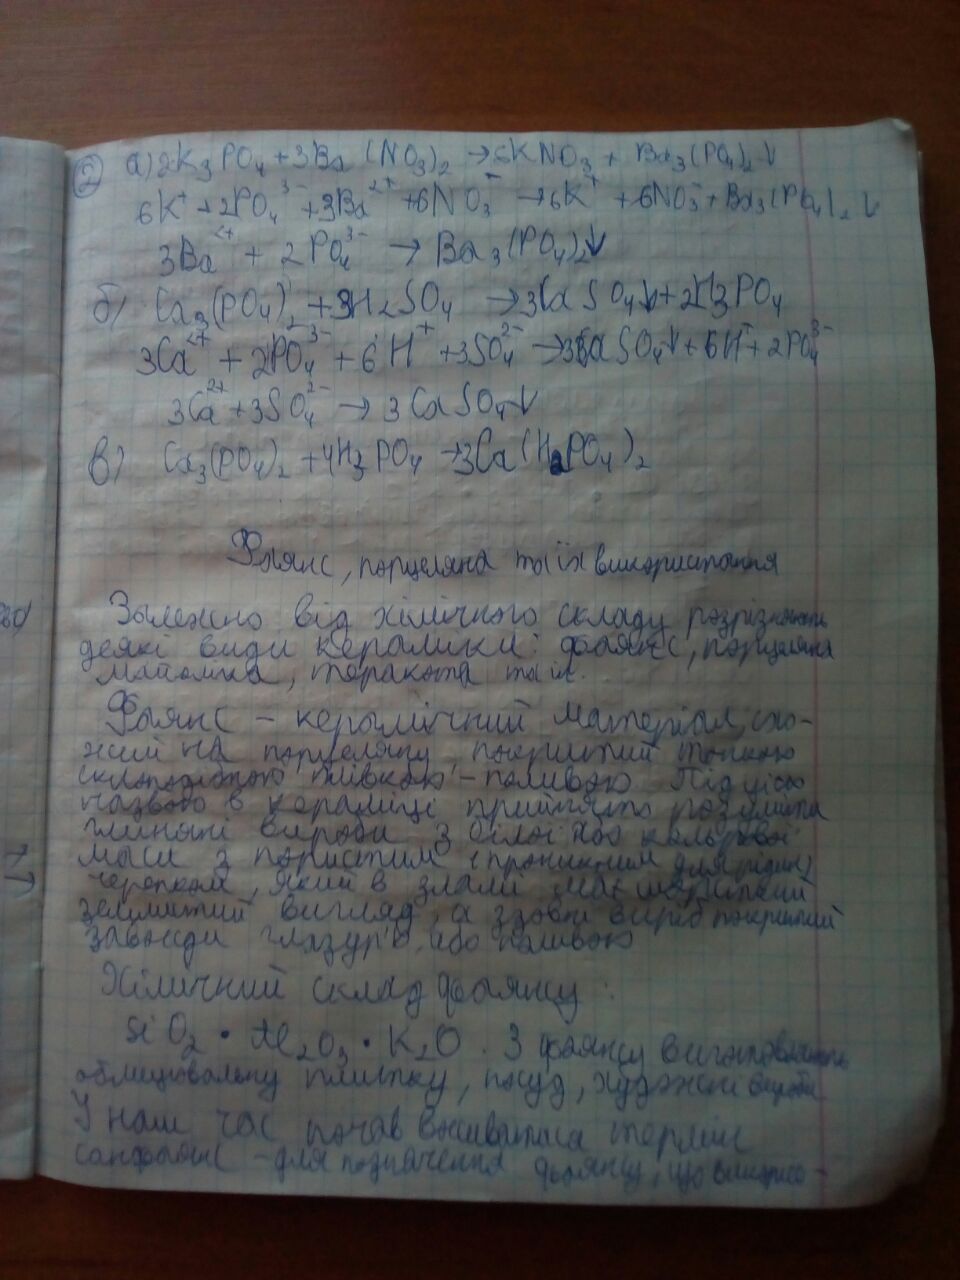 ② а) 2K₃PO₄ + 3Ba(NO₃)₂ → 6KNO₃ + Ba₃(PO₄)₂↓
6K⁺ + 2PO₄³⁻ + 3Ba²⁺ + 6NO₃⁻ → 6K⁺ + 6NO₃⁻ + Ba₃(PO₄)₂↓
3Ba²⁺ + 2PO₄³⁻ → Ba₃(PO₄)₂↓
б) Ca₃(PO₄)₂ + 3H₂SO₄ → 3CaSO₄↓ + 2H₃PO₄
3Ca²⁺ + 2PO₄³⁻ + 6H⁺ + 3SO₄²⁻ → 3CaSO₄↓ + 6H⁺ + 2PO₄³⁻
3Ca²⁺ + 3SO₄²⁻ → 3CaSO₄↓
в) Ca₃(PO₄)₂ + 4H₃PO₄ → 3Ca(H₂PO₄)₂
Фаянс, порцеляна та їх використання
Залежно від хімічного складу розрізняють
деякі види кераміки: фаянс, порцеляна
майоліка, теракота та ін.
Фаянс – керамічний матеріал, схо-
жий на порцеляну, покритий тонкою
склоподібною плівкою – поливою. Під цією
назвою в кераміці прийнято розуміти
глиняні вироби з білої або кольрової
маси з пористим (проникним для рідин)
черепком, який в зламі має шорсткий
землистий вигляд, а ззовні виріб покритий
завжди глазур'ю або поливою
Хімічний склад фаянсу:
SiO₂ • Al₂O₃ • K₂O. З фаянсу виготовляють
облицювальну плитку, посуд, художні вироби
У наш час почав вживатися термін
санфаянс – для позначення фаянсу, що викорис-